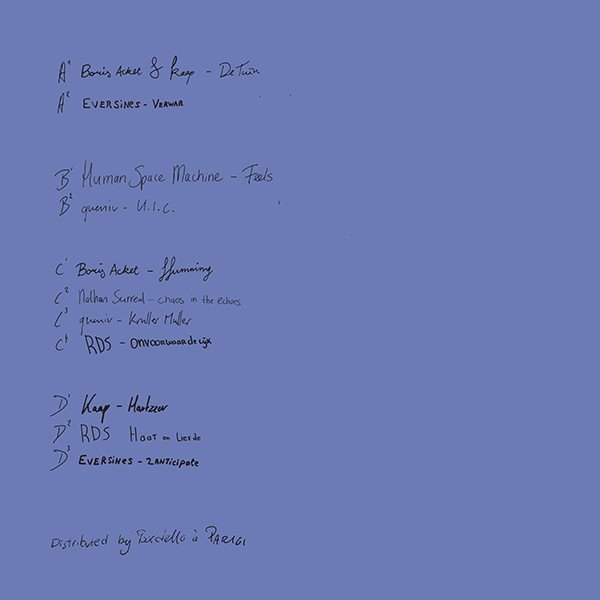 A1 Boris Acket & Kaap - De Tuin
A2 EVERSINES - VERWAR
B1 Human Space Machine - Feels
B2 queniv - U.I.C.
C1 Boris Acket - Humming
C2 Nathan Surreal - chaos in the echoes
C3 queniv - Kruller Muller
C4 RDS - ONVOORWAARDELIJK
D1 Kaap - Hartzeer
D2 RDS HAAT en LIEFDE
D3 EVERSINES - 2ANTICIPATE
Distributed by à PARIGI